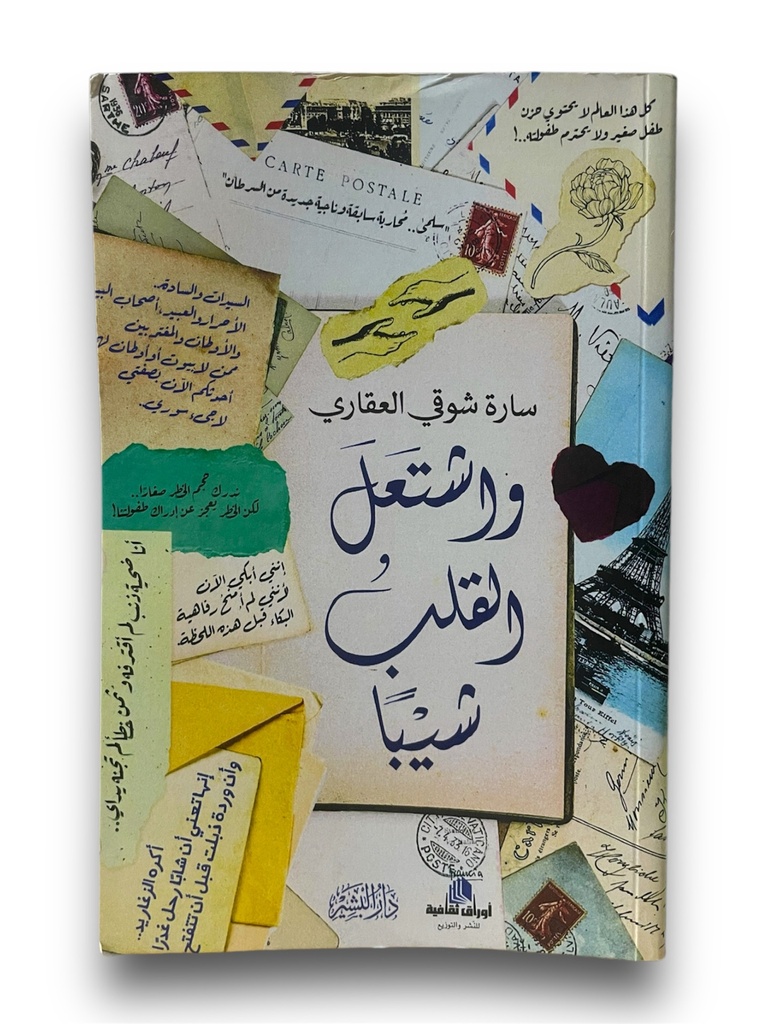 كل هذا العالم لا يحتوي حزن
طفل صغير ولا يحترم طفولته..!
CARTE POSTALE
"سلمى.. مُحاربة سابقة وناجية جديدة من السرطان"
السيدات والسادة..
الأحرار والعبيد، أصحاب البيو
والأوطان والمغتربين
ممن لا بيوت أو أوطان لهم
أحدثكم الآن بصفتي
لاجىء سوري.
سارة شوقي العقاري
واشتعَلَ
القلب
شيْبًا
ندرك حجم الخطر صغارًا..
لكن الخطر يعجز عن إدراك طفولتنا!
إنني أبكي الآن
لأنني لم أمنح رفاهية
البكاء قبل هذه اللحظة.
أنا ضحية ذنب لم أقترفه و ثمن خطأ لم تجنه يداي..
أكره الزغاريد..
إنها تعني أن شابًا رحل غدرًا
وأن وردة ذبلت قبل أن تتفتح
Tour Eiffel
CITTA VATICANO
POSTE
دار البشير
أوراق ثقافية
للنشر والتوزيع